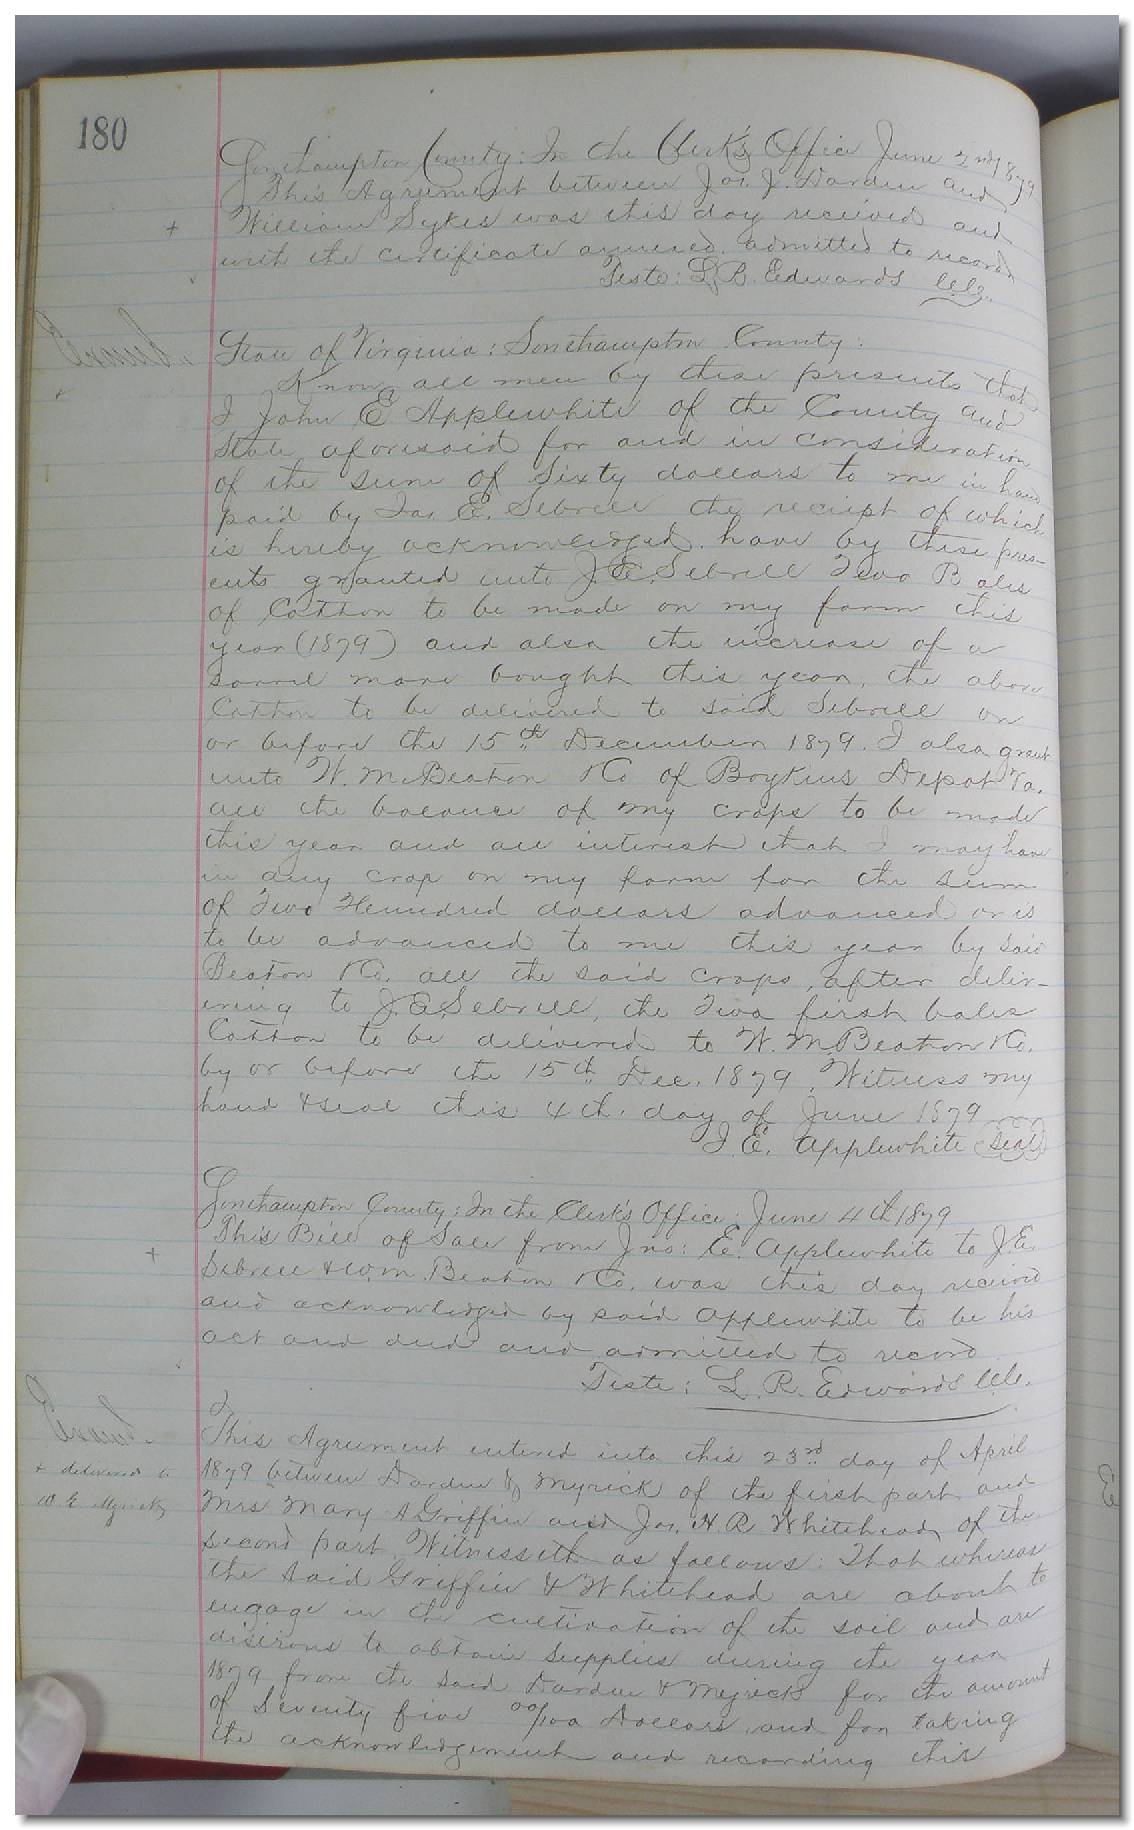 180
Southampton County: In the Clerk's Office June 2nd 1879
This Agreement between Jas. J. Darden and
William Sykes was this day received and
with the certificate annexed admitted to record
Teste: L. R. Edwards C.C.
Examd.
State of Virginia: Southampton County:
Know all men by these presents that
I John E. Applewhite of the County and
State aforesaid for and in consideration
of the sum of Sixty dollars to me in hand
paid by Jas. E. Sebrell the receipt of which
is hereby acknowledged. have by these pres-
ents granted unto J. E. Sebrell Two Bales
of Cotton to be made on my farm this
year (1879) and also the increase of a
sorrel mare bought this year, the above
Cotton to be delivered to said Sebrell on
or before the 15th December 1879. I also grant
unto W. M. Beaton & Co of Boykins Depot Va.
all the balance of my crops to be made
this year and all interest that I may have
in any crop on my farm for the sum
of Two Hundred dollars advanced or is
to be advanced to me this year by said
Beaton & Co. all the said crops, after deliv-
ering to J. E. Sebrell, the Two first bales
Cotton to be delivered to W. M. Beaton & Co.
by or before the 15th Dec. 1879. Witness my
hand & seal this 4th. day of June 1879
J. E. Applewhite Seal
Southampton County: In the Clerk's Office: June 4th 1879
This Bill of Sale from Jno: E. Applewhite to J. E.
Sebrell & Wm. Beaton & Co. was this day received
and acknowledged by said Applewhite to be his
act and deed and admitted to record
Teste: L. R. Edwards C.C.
Examd.
+ delivered to
W E Myrick
This Agreement entered into this 23rd day of April
1879 between Darden & Myrick of the first part and
Mrs Mary A Griffin and Jas. H. R Whitehead, of the
second part, Witnesseth as follows: That whereas
the said Griffin & Whitehead are about to
engage in the cultivation of the soil and are
desirous to obtain supplies during the year
1879 from the said Darden & Myrick for the amount
of Seventy five 00/100 Dollars, and for taking
the acknowledgement and recording this